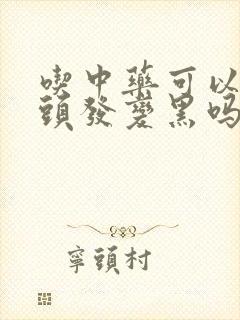 喫中藥可以
頭發變黑嗎
寧頭村